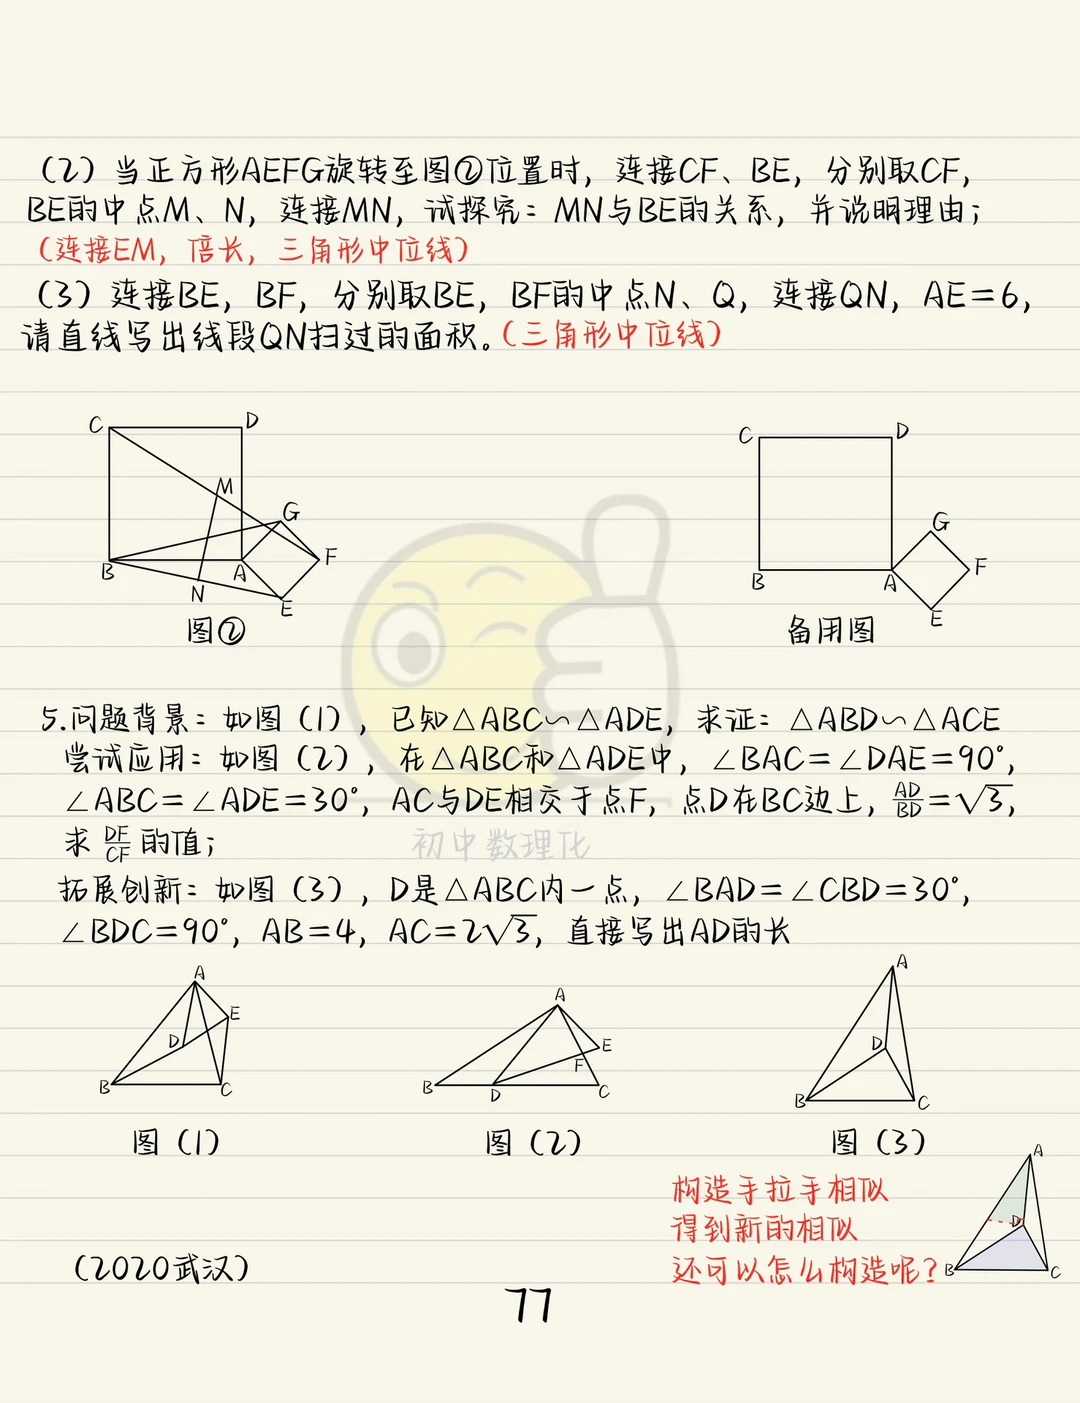 (2)当正方形AEFG旋转至图②位置时，连接CF、BE，分别取CF，
BE的中点M、N，连接MN，试探究：MN与BE的关系，并说明理由；
(连接EM，倍长，三角形中位线)
(3)连接BE，BF，分别取BE，BF的中点N、Q，连接QN，AE=6，
请直线写出线段QN扫过的面积。(三角形中位线)
C D
M
G
B A F
N E
图②
C D
G
B A F
E
备用图
5.问题背景：如图(1)，已知△ABC∽△ADE，求证：△ABD∽△ACE
尝试应用：如图(2)，在△ABC和△ADE中，∠BAC=∠DAE=90°，
∠ABC=∠ADE=30°，AC与DE相交于点F，点D在BC边上，AD/BD=√3，
求DF/CF的值；
初中数理化
拓展创新：如图(3)，D是△ABC内一点，∠BAD=∠CBD=30°，
∠BDC=90°，AB=4，AC=2√3，直接写出AD的长
A
E
D
B C
图(1)
A
E
F
B D C
图(2)
A
D
B C
图(3)
构造手拉手相似
得到新的相似
还可以怎么构造呢？
A
D
B C
(2020武汉)
77